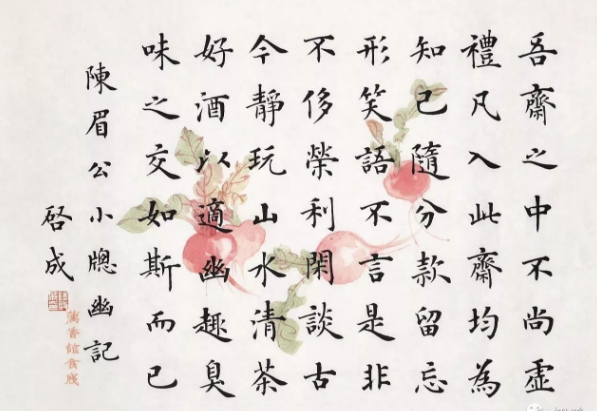 吾齋之中不尚虛
禮凡入此齋均為
知己隨分款留忘
形笑語不言是非
不侈榮利閑談古
今靜玩山水清茶
好酒以適幽趣臭
味之交如斯而已
陳眉公小牕幽記
啓成
舊香館食成